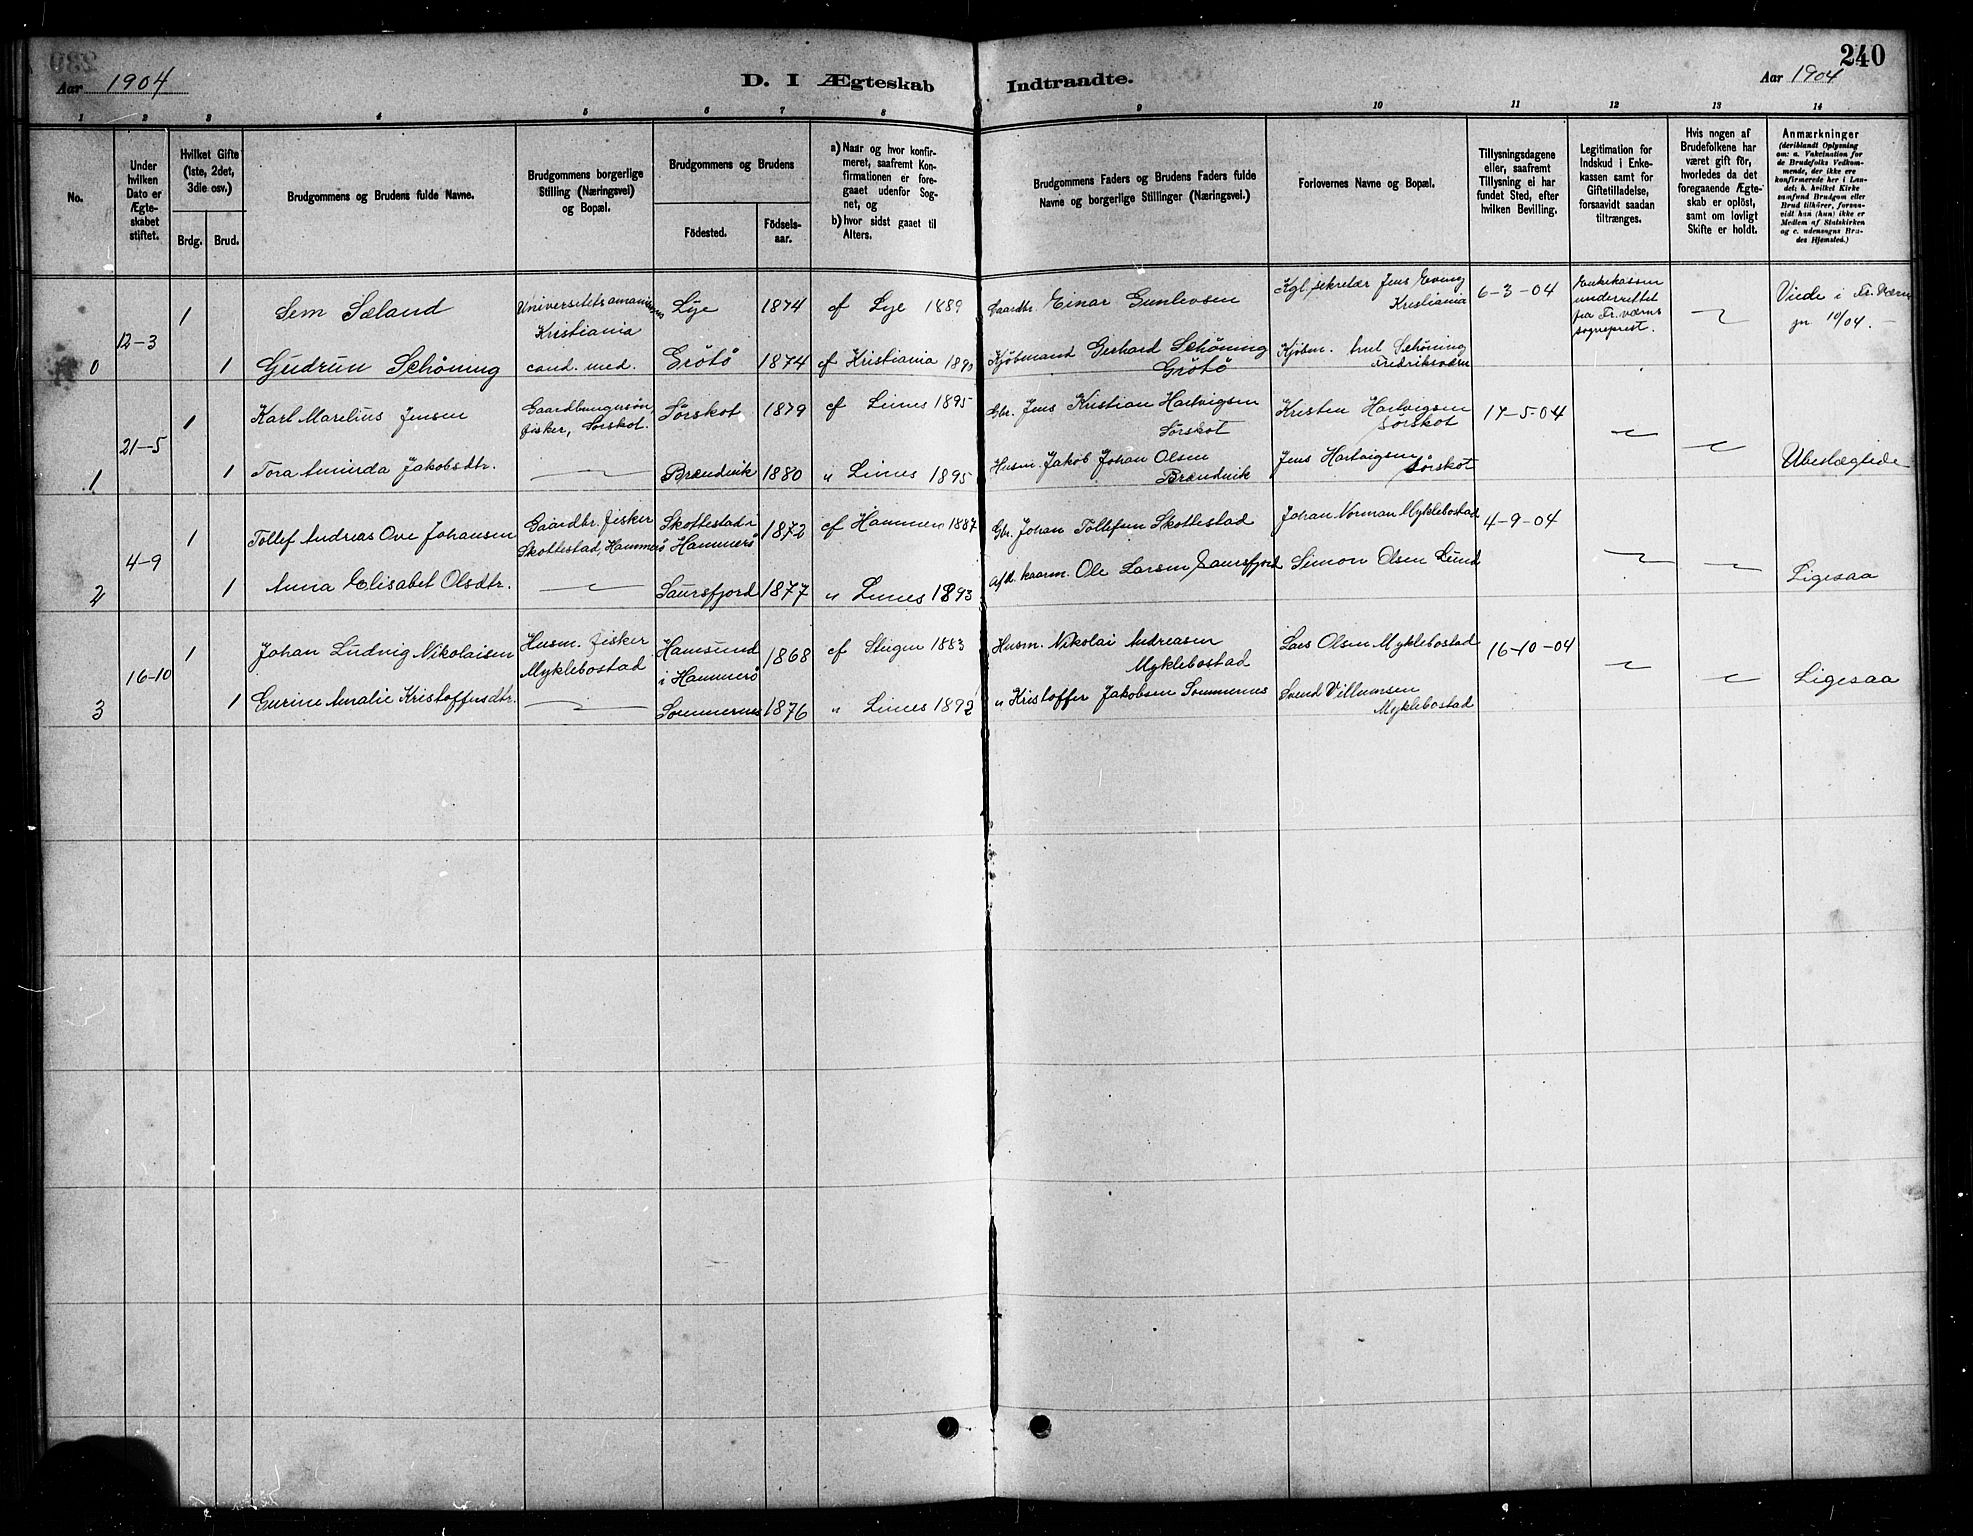 240
Aar 1904
D. I Ægteskab
Indtraadte.
Aar 1904
1 2 3 4 5 6 7 8 9 10 11 12 13 14
No.
Under
hvilken
Dato er
Ægte-
skabet
stiftet.
Hvilket Gifte
(1ste, 2det,
3die osv.)
Brdg.
Brud.
Brudgommens og Brudens fulde Navne.
Brudgommens borgerlige
Stilling (Næringsvei)
og Bopæl.
Brudgommens og Brudens
Födested.
Födsels-
aar.
a) Naar og hvor konfir-
meret, saafremt Kon-
firmationen er fore-
gaaet udenfor Sog-
net, og
b) hvor sidst gaaet til
Alters.
Brudgommens Faders og Brudens Faders fulde
Navne og borgerlige Stillinger (Næringsvei.)
Forlovernes Navne og Bopæl.
Tillysningsdagene
eller, saafremt
Tillysning ei har
fundet Sted, efter
hvilken Bevilling.
Legitimation for
Indskud i Enke-
kassen samt for
Giftetilladelse,
forsaavidt saadan
tiltrænges.
Hvis nogen af
Brudefolkene har
været gift för,
hvorledes da det
foregaaende Ægte-
skab er oplöst,
samt om lovligt
Skifte er holdt.
Anmærkninger
(deriblandt Oplysning
om: a. Vakcination for
de Brudefolks Vedkom-
mende, der ikke ere
konfirmerede her i Lan-
det; b. hvilket Kirke
samfund Brudgom eller
Brud tilhörer, forsaa-
vidt han (hun) ikke er
Medlem af Statskirken
og c. udensogns Bru-
des Hjemsted.)
0
12-3
1
Sem Sæland
Universitetsamanuensis
Kristiania
Lye
1874
cf Lye 1889
Gaardbr. Einar Gunlevsen
Kgl. sekretær Jens
Kristiania
6-3-04
Enkekassen
underrettet
fra Fr.værns
sogneprest.
Viede i Fr.værn
10/04.
1
Gudrun Schöning
cand. med.
Grötö
1874
cf Kristiania 1890
Kjöbmand Gerhard Schöning
Grötö
Kjöbm. Schöning
Fredriksværn
1
21-5
1
Karl Marelius Jensen
Gaardbrugersön,
fisker, Sörskot.
Sörskot
1879
cf Leines 1895
Gbr. Jens Kristian Hartvigsen
Sörskot
Kristen Hartvigsen
Sörskot
17-5-04
1
Tora Aminda Jakobsdtr.
Brændvik
1880
" Leines 1895
Husm. Jakob Johan Olsen
Brændvik
Jens Hartvigsen
Sörskot
Ubeslægtede
2
4-9
1
Tollef Andreas Ove Johansen
Gaardbr. fisker
Skottestad, Hammerö
Skottestad i
Hammerö
1872
cf Hammerö 1887
Gbr. Johan Tollefsen Skottestad
Johan Norman Myklebostad
4-9-04
1
Anna Elisabet Olsdtr.
Saursfjord
1877
" Leines 1893
afd. kaarm. Ole Larsen Saursfjord
Simon Olsen Lund
Ligesaa
3
16-10
1
Johan Ludvig Nikolaisen
Husm. fisker
Myklebostad
Hamsund
i Hammerö
1868
cf Steigen 1883
Husm. Nikolai Andreasen
Myklebostad
Lars Olsen Myklebostad
16-10-04
1
Gurine Amalie Kristoffersdtr.
Sommernes
1876
" Leines 1892
" Kristoffer Jakobsen Sommernes
Svend Villumsen
Myklebostad
Ligesaa